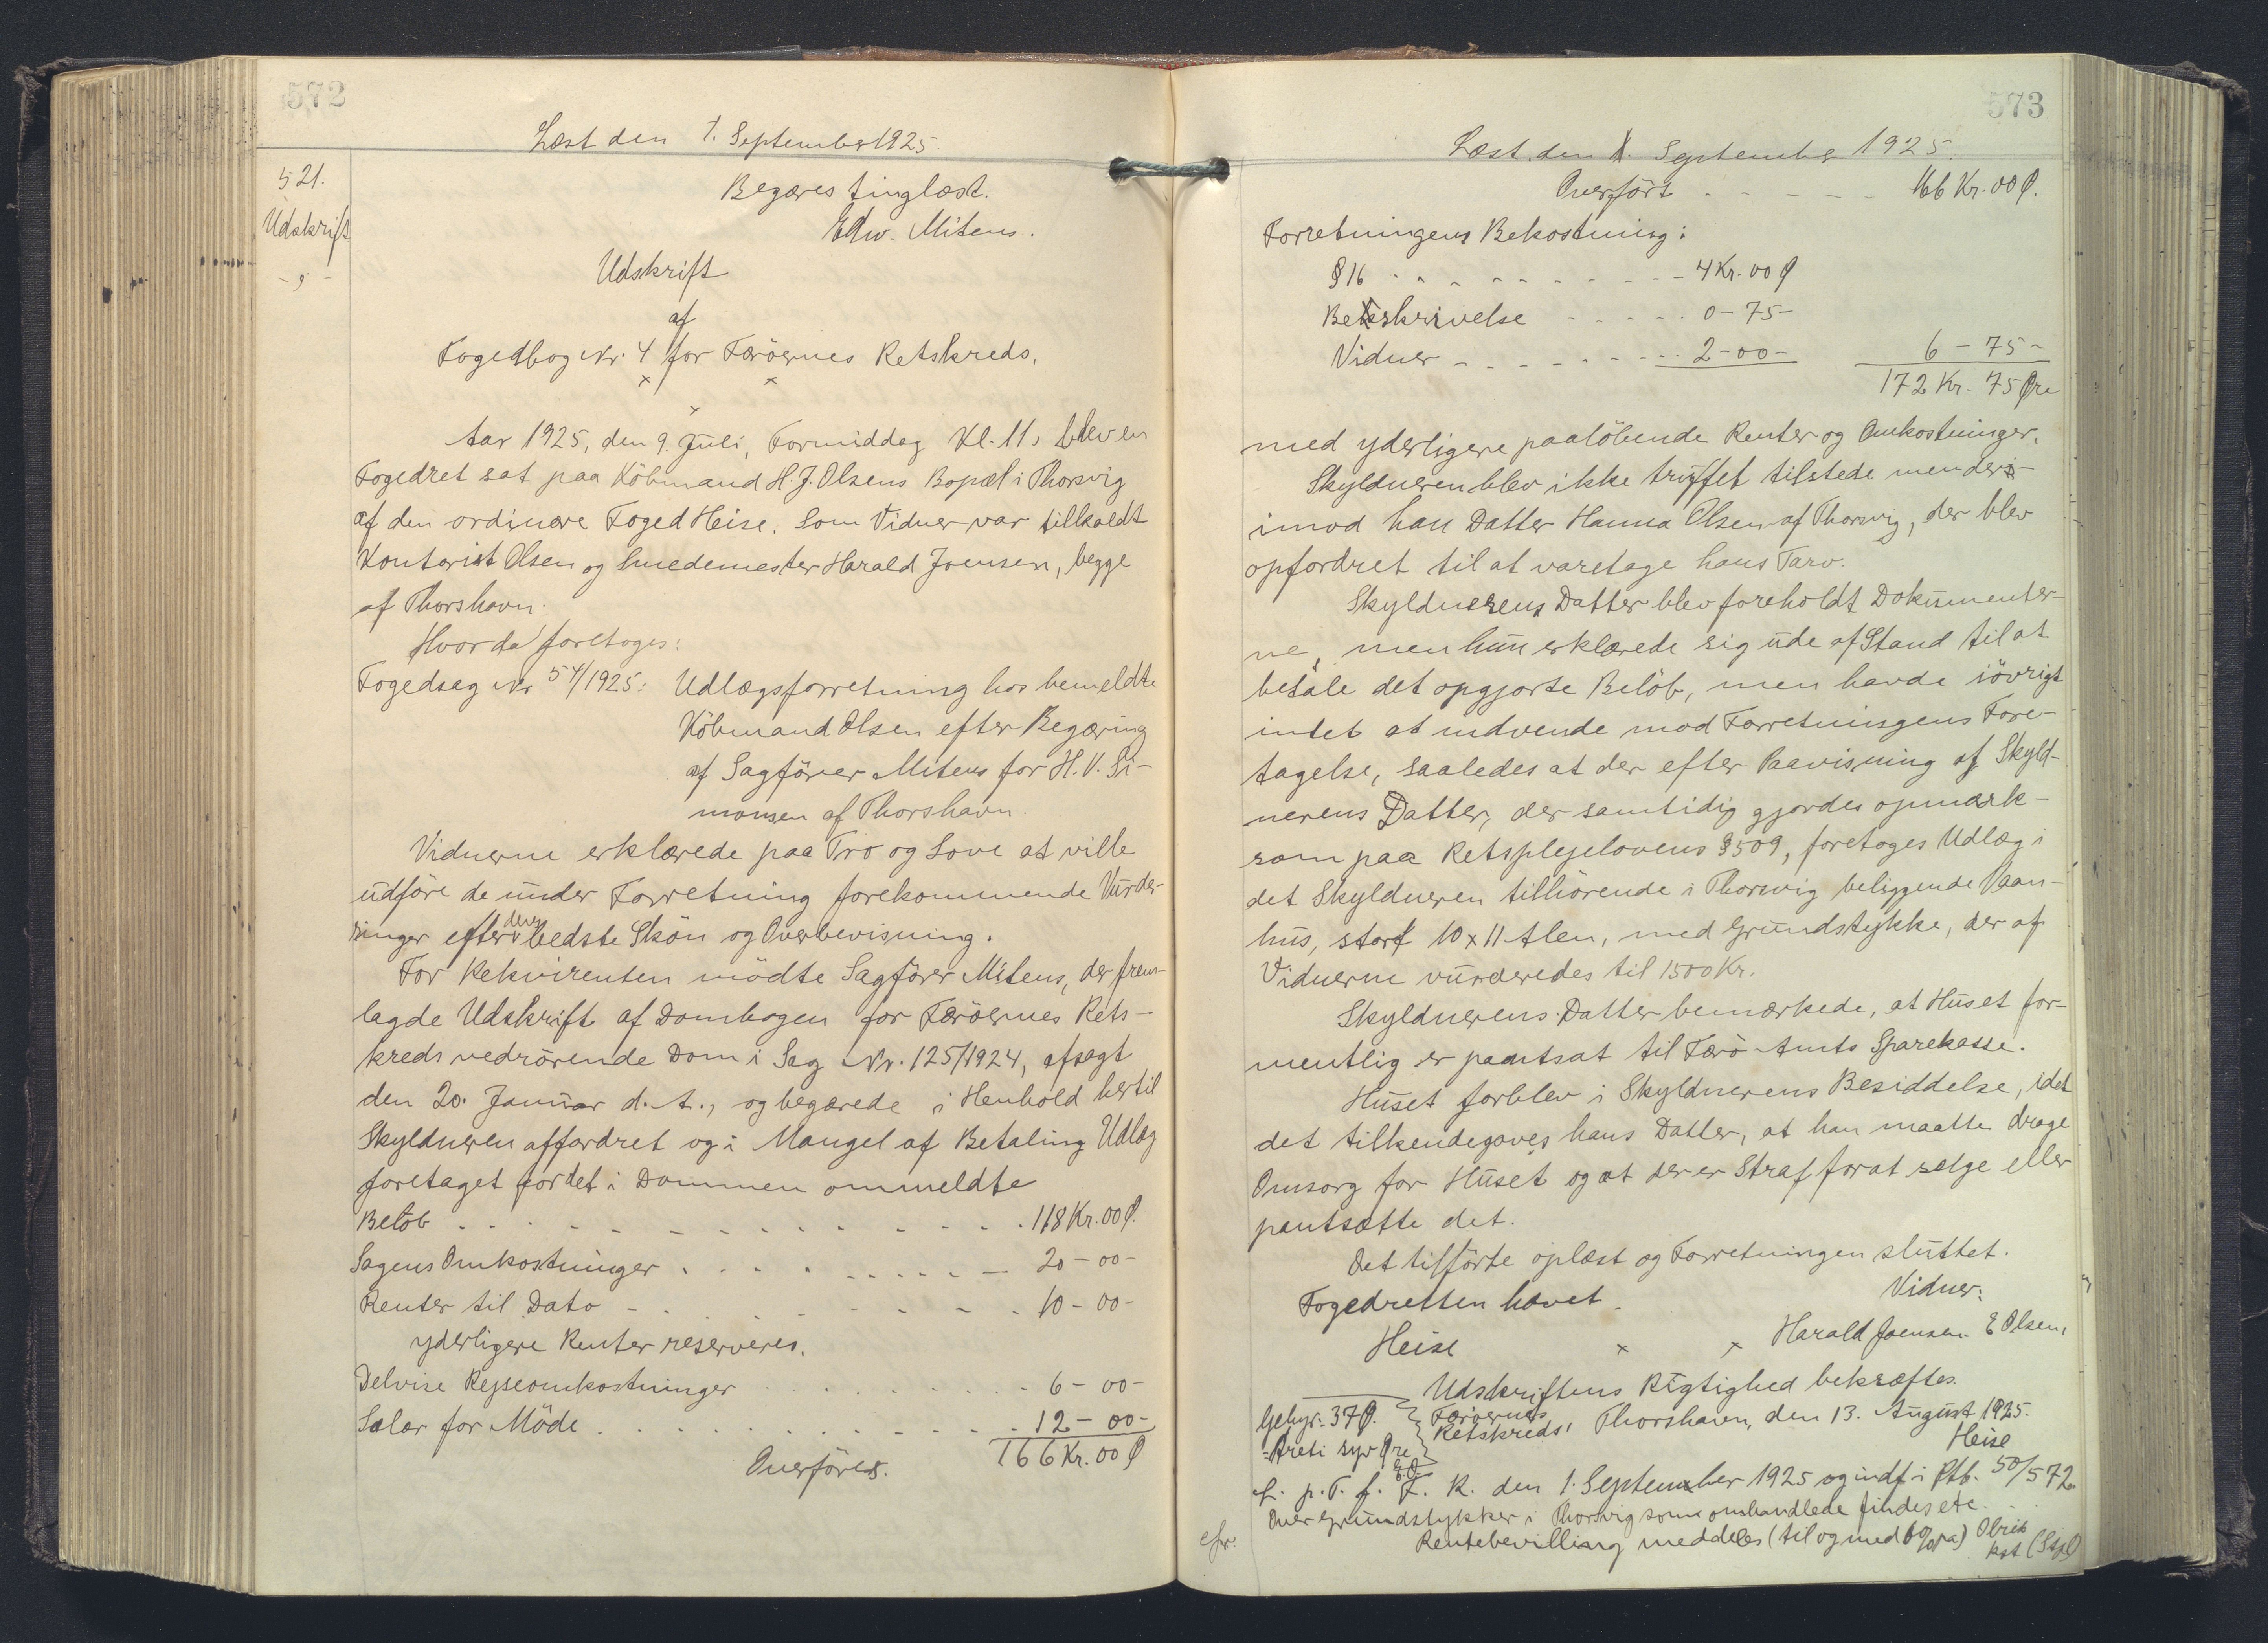 572
Læst den 1. September 1925.
521.
Udskrift
Begæres tinglæst.
Edw. Mitens.
Udskrift
af
Fogedbog Nr. 4 for Færöernes Retskreds.
Aar 1925, den 9. Juli, Formiddag Kl. 11, blev en
Fogedret sat paa Köbmand H. J. Olsens Bopæl i Thorsvig
af den ordinære Foged Heise. Som Vidner var tilkaldt
Kontorist Olsen og Smedemester Harald Joensen, begge
af Thorshavn.
Hvor da foretoges:
Fogedsag Nr 54/1925: Udlægsforretning hos bemeldte
Köbmand Olsen efter Begæring
af Sagförer Mitens for H. V. Si-
monsen af Thorshavn.
Vidnerne erklærede paa Tro og Love at ville
udföre de under Forretning forekommende Vurder
ringer efter deres bedste Skön og Overbevisning.
For Rekvirenten mödte Sagförer Mitens, der frem-
lagde Udskrift af Dombogen for Færöernes Rets-
kreds vedrörende Dom i Sag Nr. 125/1924, afsagt
den 20. Januar d. A., og begærede i Henhold hertil
Skyldneren affordret og i Mangel af Betaling Udlæg
foretaget for det i Dommen ommeldte
Belöb . . . . . . . . . . 118 Kr. 00 Ø.
Sagens Omkostninger . . . . . . . . 20 - 00 -
Renter til Dato - . . . . . . . 10 - 00 -
yderligere Renter reserveres.
Delvise Rejseomkostninger . . . . . . . 6 - 00 -
Salær for Möde . . . . . . . . . . 12 - 00 -
Overföres. 166 Kr. 00 Ø
573
Læst den 1. September 1925.
Overfört - - - - - 166 Kr. 00 Ø.
Forretningens Bekostning:
§ 16 - - - - - - - - 4 Kr. 00 Ø
Beskrivelse - - - - - 0 - 75 -
Vidner - - - - - - - 2 - 00 - 6 - 75 -
172 Kr. 75 Øre
med yderligere paalöbende Renter og Omkostninger.
Skyldneren blev ikke truffet tilstede men der-
imod han Datter Hanna Olsen af Thorsvig, der blev
opfordret til at varetage hans Tarv.
Skyldnerens Datter blev foreholdt Dokumenter-
ne, men hun erklærede sig ude af Stand til at
betale det opgjorte Belöb, men havde iövrigt
intet at indvende mod Forretningens Fore-
tagelse, saaledes at der efter Paavisning af Skyld-
nerens Datter, der samtidig gjordes opmærk-
som paa Retsplejelovens § 509, foretoges Udlæg i
det Skyldneren tilhörende i Thorsvig beliggende Vaan-
hus, stort 10 x 11 Alen, med Grundstykke, der af
Vidnerne vurderedes til 1500 Kr.
Skyldnerens Datter bemærkede, at Huset for-
mentlig er pantsat til Færö Amts Sparekasse.
Huset forblev i Skyldnerens Besiddelse, idet
det tilkendegaves hans Datter, at han maatte drage
Omsorg for Huset og at der er Straf for at sælge eller
pantsætte det.
Det tilförte oplæst og Forretningen sluttet.
Fogedretten hævet. Vidner:
Heise Harald Joensen E Olsen.
Udskriftens Rigtighed bekræftes.
Gebyr: 37 Ø.
Treti syv Øre
E.O.
Færöernes
Retskreds, Thorshavn, den 13. August 1925.
Heise
L. p. T. f. F. R. den 1. September 1925 og indf i Ptb. 50/572
Over Grundstykker i Thorsvig som omhandlede findes etc.
Rentebevilling meddeles (til og med 6 % pa)
kst (Stpl)